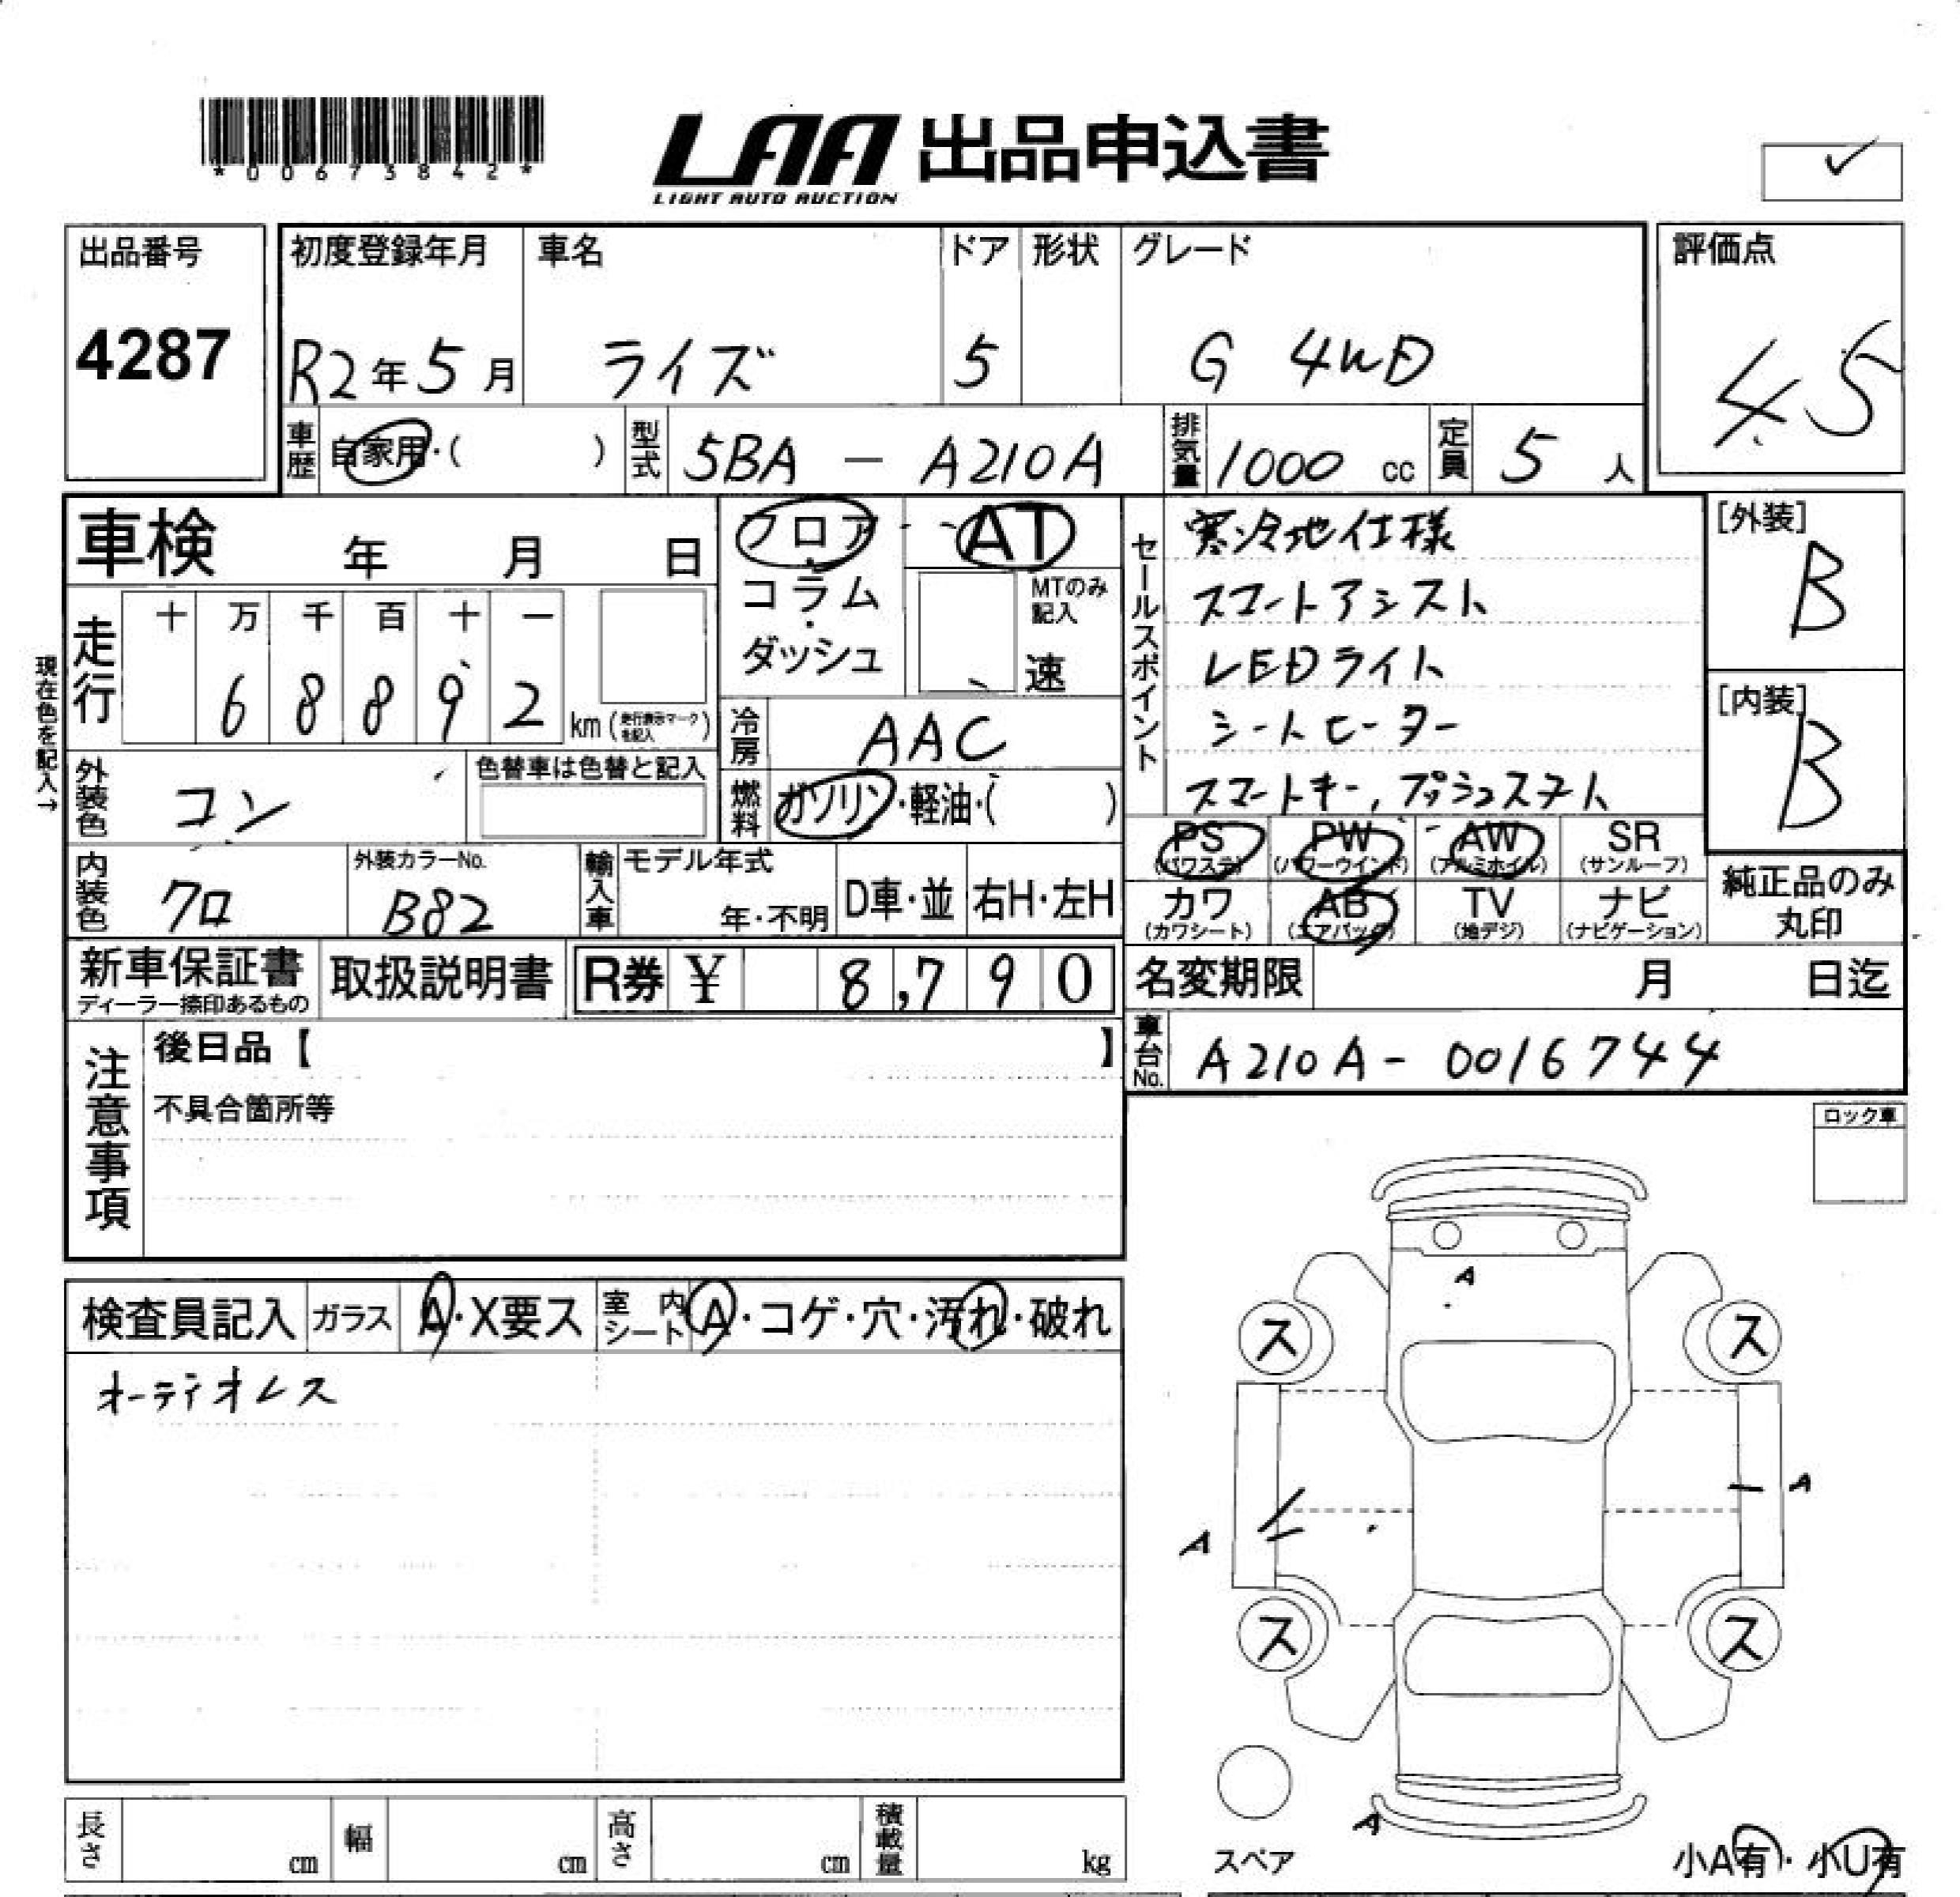 *00673842*
LAA 出品申込書
LIGHT AUTO AUCTION
出品番号
4287
初度登録年月
R2年5月
車名
ライズ
ドア
5
形状
グレード
G 4WD
評価点
4.5
車歴
自家用・( )
型式
5BA - A210A
排気量
1000 cc
定員
5 人
車検 年 月 日
フロア・コラム・ダッシュ
AT
MTのみ記入
速
現在色を記入→
走行
十 万 千 百 十 一
6 8 8 9 2
km (走行表示マークを記入)
冷房
AAC
外装色
コン
色替車は色替と記入
燃料
ガソリン・軽油・( )
内装色
クロ
外装カラーNo.
B82
輸入車
モデル年式
年・不明
D車・並
右H・左H
セールスポイント
寒冷地仕様
スマートアシスト
LEDライト
シートヒーター
スマートキー,プッシュスタート
[外装]
B
[内装]
B
PS
(パワステ)
PW
(パワーウインド)
AW
(アルミホイル)
SR
(サンルーフ)
カワ
(カワシート)
AB
(エアバッグ)
TV
(地デジ)
ナビ
(ナビゲーション)
純正品のみ
丸印
新車保証書
ディーラー捺印あるもの
取扱説明書
R券 ¥ 8,790
名変期限 月 日迄
車台No.
A210A-0016744
注意事項
後日品【 】
不具合箇所等
ロック車
検査員記入
ガラス
A・X要ス
室内シート
A・コゲ・穴・汚れ・破れ
オーディオレス
A
ス
ス
A
A
ス
ス
A
スペア
小A有・小U有
長さ cm
幅 cm
高さ cm
積載量 kg